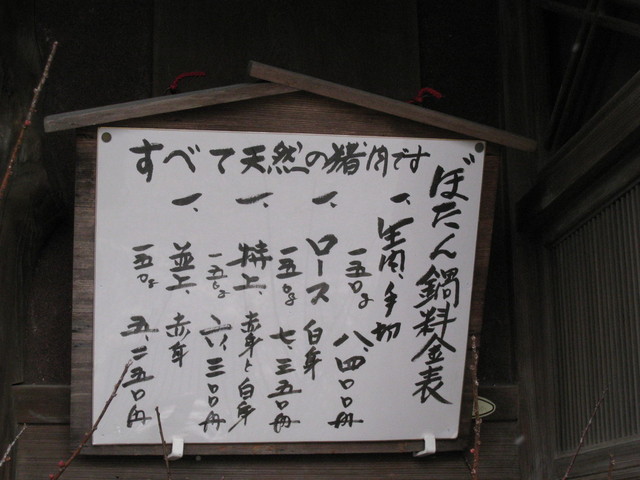 ぼたん鍋料金表
すべて天然の猪肉です
一、生肉、手切
一五〇g 八、四〇〇円
一、ロース 白身
一五〇g 七、三五〇円
一、特上、赤身と白身
一五〇g 六、三〇〇円
一、並上、赤身
一五〇g 五、二五〇円